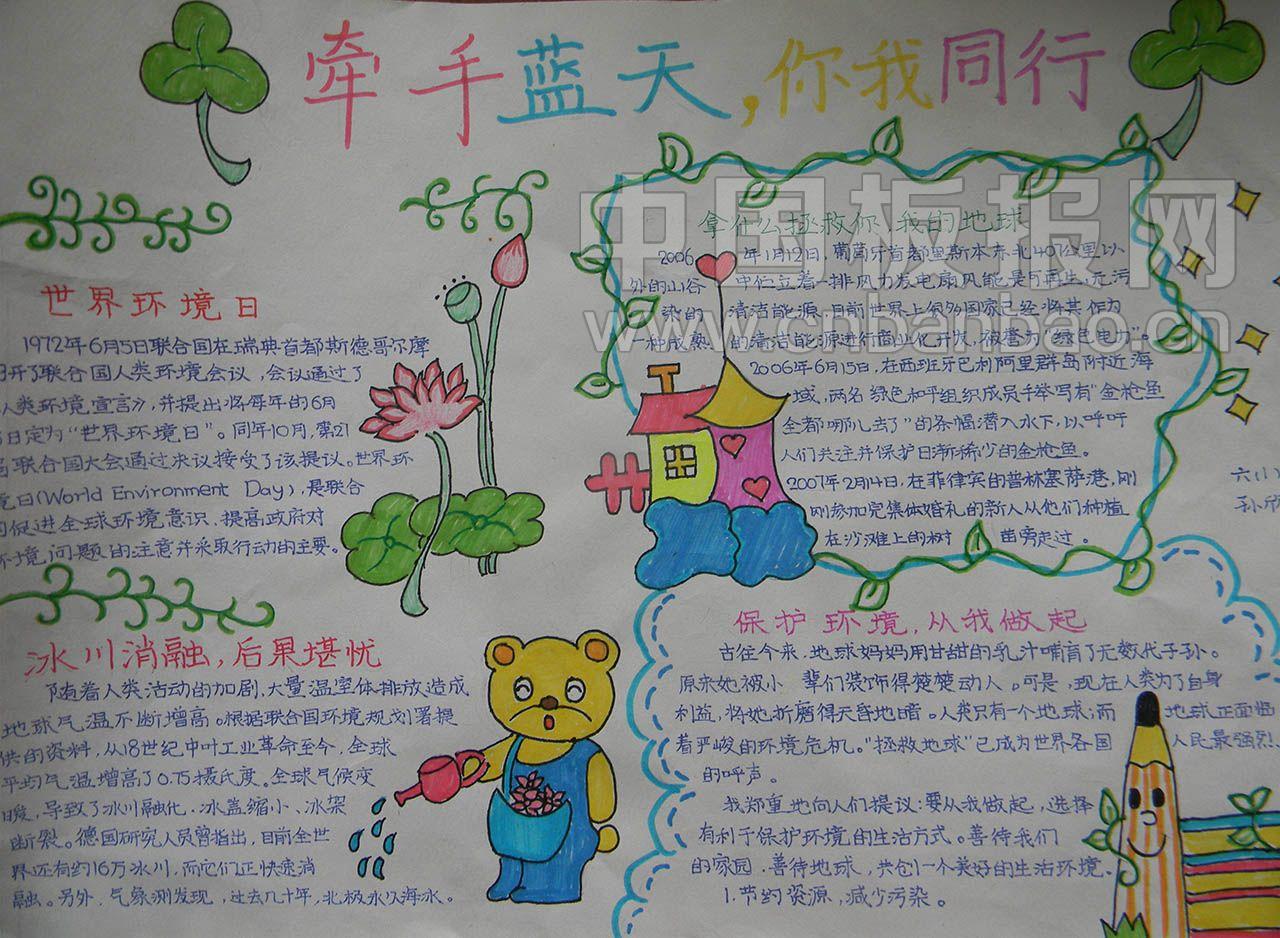 牵手蓝天,你我同行
世界环境日
1972年6月5日联合国在瑞典首都斯德哥尔摩
开了联合国人类环境会议,会议通过了
人类环境宣言》,并提出将每年的6月
日定为“世界环境日”。同年10月,第21
联合国大会通过决议接受了该提议。世界环
日(World Environment Day),是联合
促进全球环境意识、提高政府对
环境问题的注意并采取行动的主要。
冰川消融,后果堪忧
随着人类活动的加剧,大量温室体排放造成
地球气温不断增高。根据联合国环境规划署提
供的资料,从18世纪中叶工业革命至今,全球
平均气温增高了0.75摄氏度。全球气候变
暖,导致了冰川融化、冰盖缩小、冰架
断裂。德国研究人员曾指出,目前全世
界还有约16万冰川,而它们正快速消
融。另外,气象测发现,过去几十年,北极永久海冰。
拿什么拯救你,我的地球
2006年1月12日,葡萄牙首都里斯本东北407公里以
外的山谷中伫立着一排风力发电扇风能是可再生、无污
染的清洁能源,目前世界上很多国家已经将其作为
一种成熟的清洁能源进行商业化开发,被誉为“绿色电力”一
2006年6月15日,在西班牙巴利阿里群岛附近海
域,两名绿色和平组织成员手举写有“金枪鱼
全都哪儿去了”的条幅潜入水下,以呼吁
人们关注并保护日渐稀少的金枪鱼。
2007年2月14日,在菲律宾的普林塞萨港,刚
刚参加完集体婚礼的新人从他们种植
在沙滩上的树苗旁走过。
保护环境,从我做起
古往今来,地球妈妈用甘甜的乳汁哺育了无数代子孙。
原来她被小辈们装饰得楚楚动人。可是,现在人类为了自身
利益,将她折磨得天昏地暗。人类只有一个地球;而地球正面临
着严峻的环境危机。“拯救地球”已成为世界各国人民最强烈
的呼声。
我郑重地向人们提议:要从我做起,选择
有利于保护环境的生活方式。善待我们
的家园,善待地球,共创一个美好的生活环境。
1.节约资源,减少污染。
中国板报网
www.cnbanbao.cn